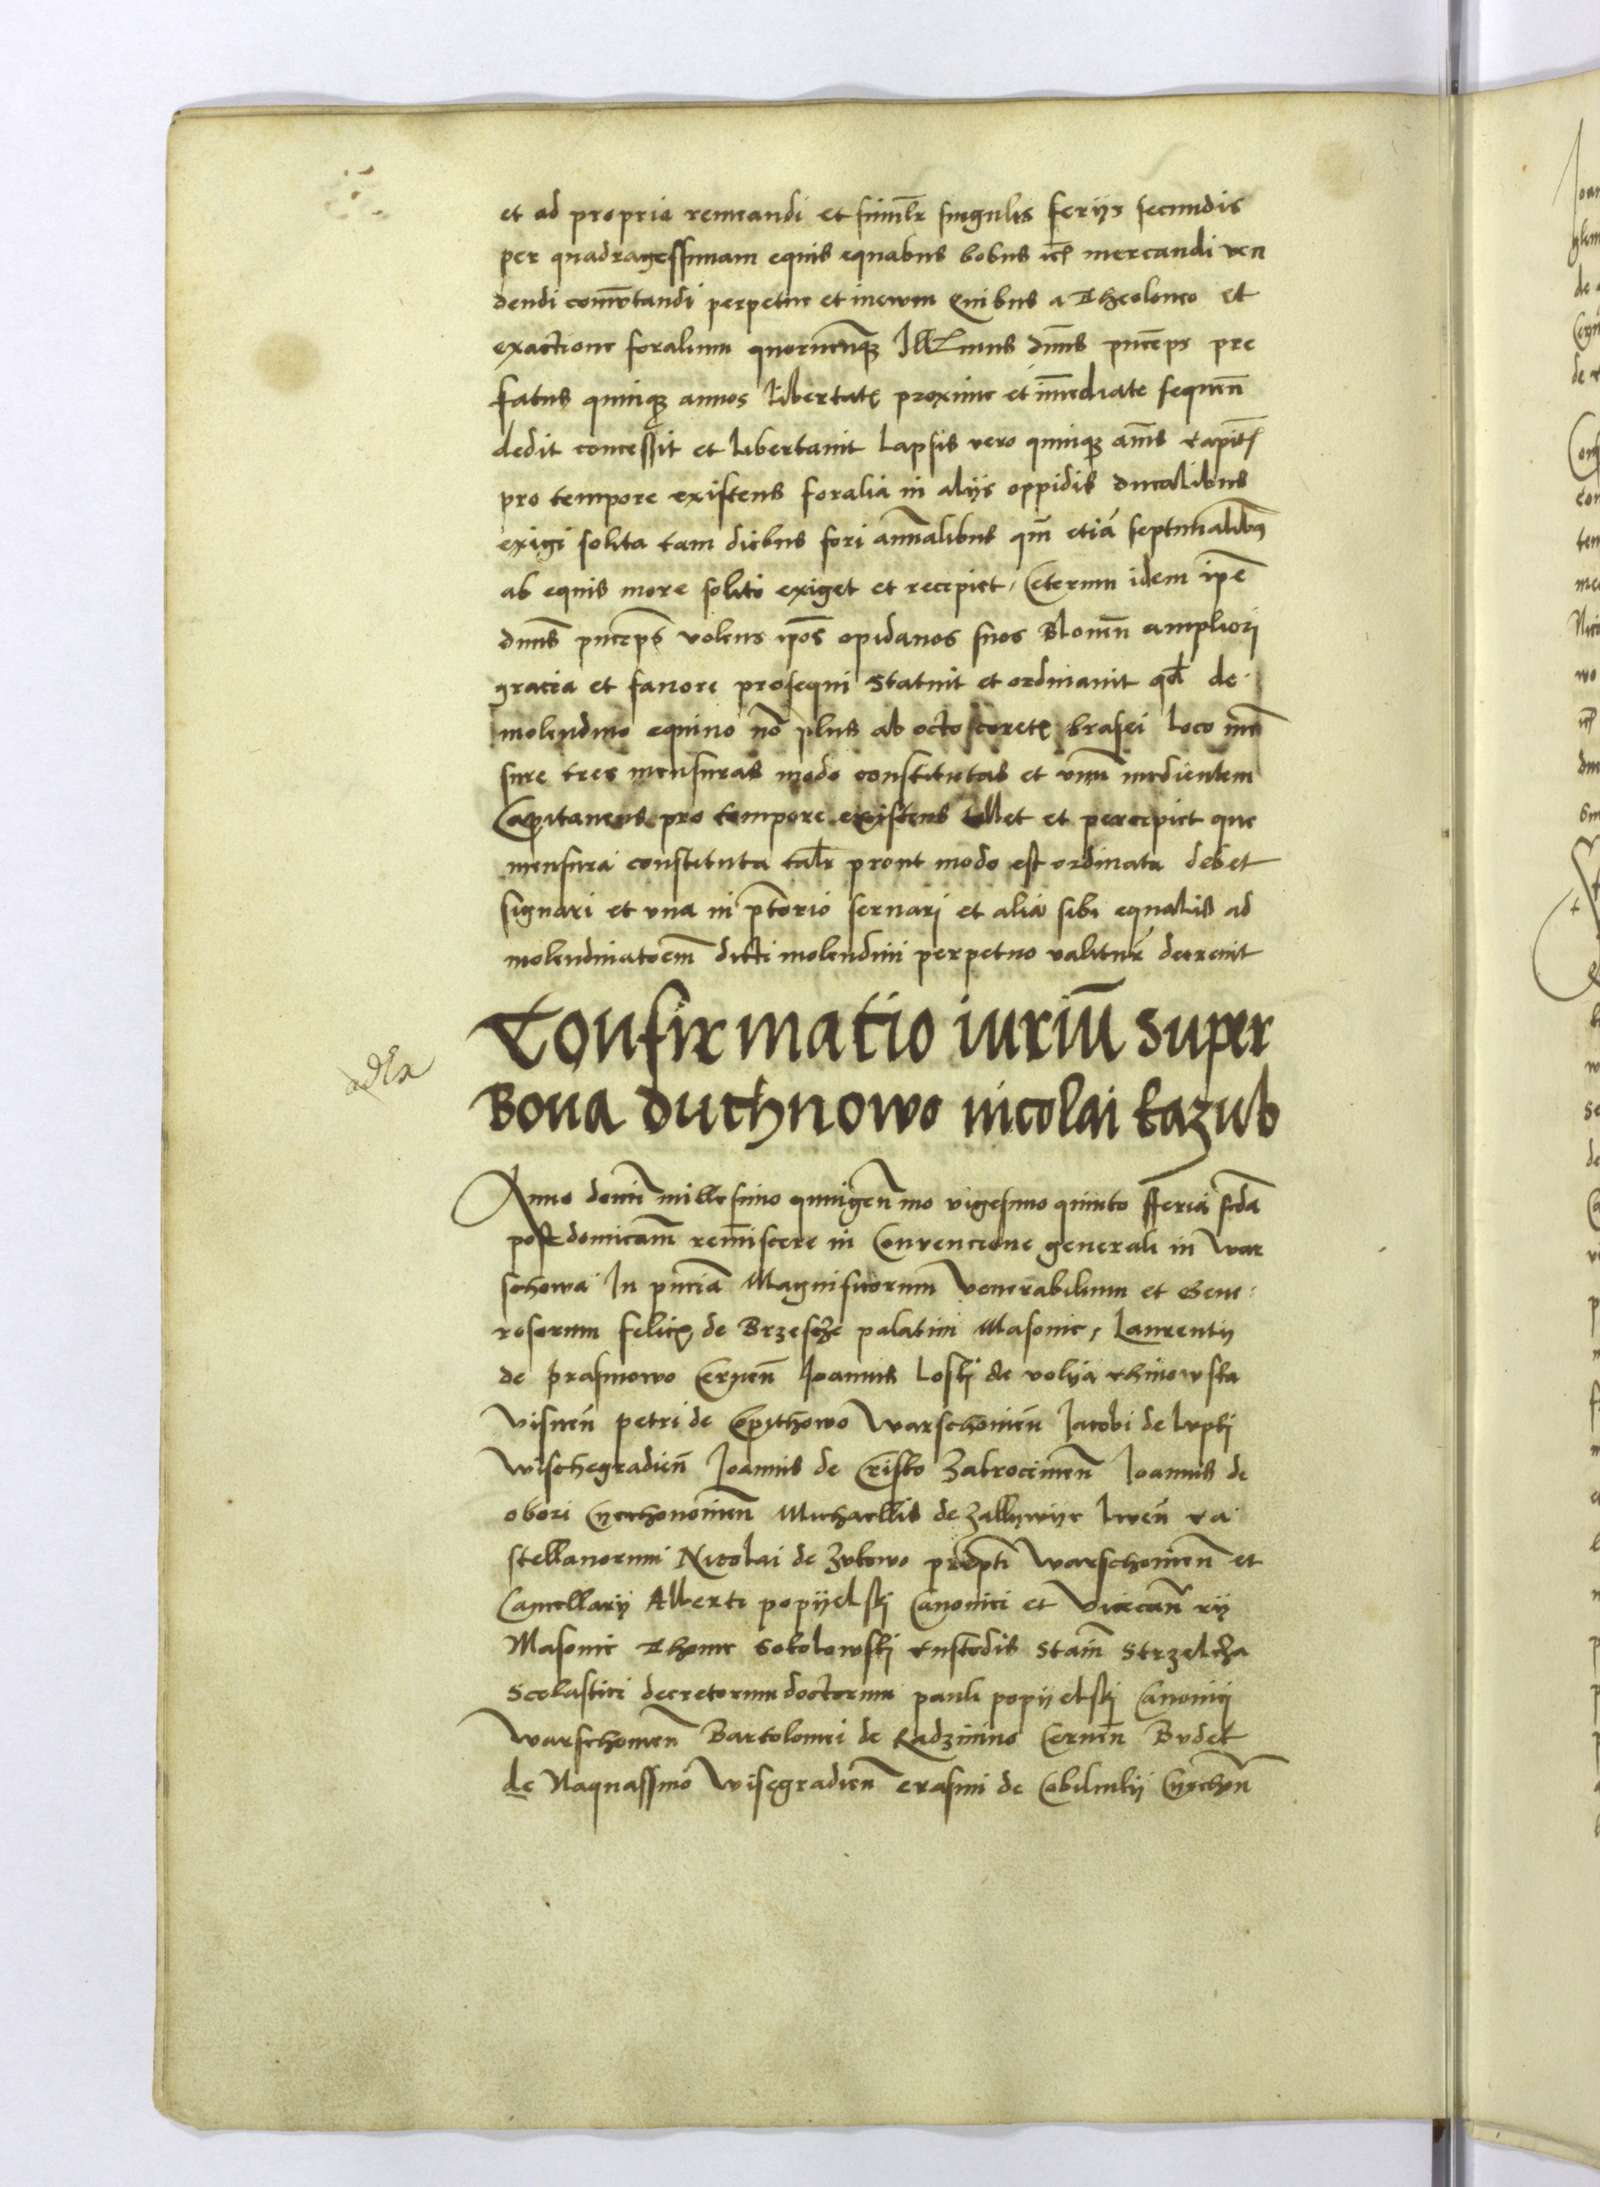 et ad propria remeandi et simlr singulis ferijs secundis
per quadragessimam equis equabus bobus etc mercandi ven
dendi comutandi perpetue et in evum Quibus a Theloneo et
exactione foralium quorumcunqz Illmus dnus princeps pre
fatus quinqz annos libertatis proxime et immediate sequen
dedit concessit et libertavit Lapsis vero quinqz annis capits
pro tempore existens foralia in alijs oppidis ducalibus
exigi solita tam diebus fori annalibus qm etia septimalibus
ab equis more solito exiget et recipiet, Ceterum idem ipe
dnus princeps volens ipos opidanos suos Blonen ampliori
gracia et favore prosequi Statuit et ordinavit qd de
molendino equino no plus ab octo coretis brasei loco men
sure tres mensuras modo constitutas et unu medientem
Capitaneus pro tempore existens tollet et percipiet que
mensura constituta talr prout modo est ordinata debet
signari et una in ptorio servari et alia sibi equalis ad
molendinatorem dicti molendini perpetuo valitur decrevit
Confirmatio iuriu super
Bona duchnowo nicolai kazub
adEx
Anno domi millesimo quingen mo vigesimo quinto fferia scda
post domicam remiscere in Convencione generali in War
schowa In pncia Magnificorum Venerabilium et Gene
rosorum felicis de Brzescze palatini Masovie, Laurentij
de prasmowo Cernen Joannis Loski de volya chinowska
Visnen petri de Copithowo Warschovien Jacobi de lypki
Wischegradien Joannis de Crisko Zakrocimen Joannis de
obori Cyechonovien Michaellis de Zallywye Liven ca
stellanorum Nicolai de Zukowo prepti Warschovien et
Cancellarij Alberti popyelski Canonici et Vicecan rij
Masovie Thome Sokolowski custodis Stain Strzelcza
Scolastici decretorum doctorum pauli popyelski Canonici
Warschovien Bartolomei de Radzimino Cernen Budek
de Naquassino Wisegradien erasmi de Cobilnikij Cyechn